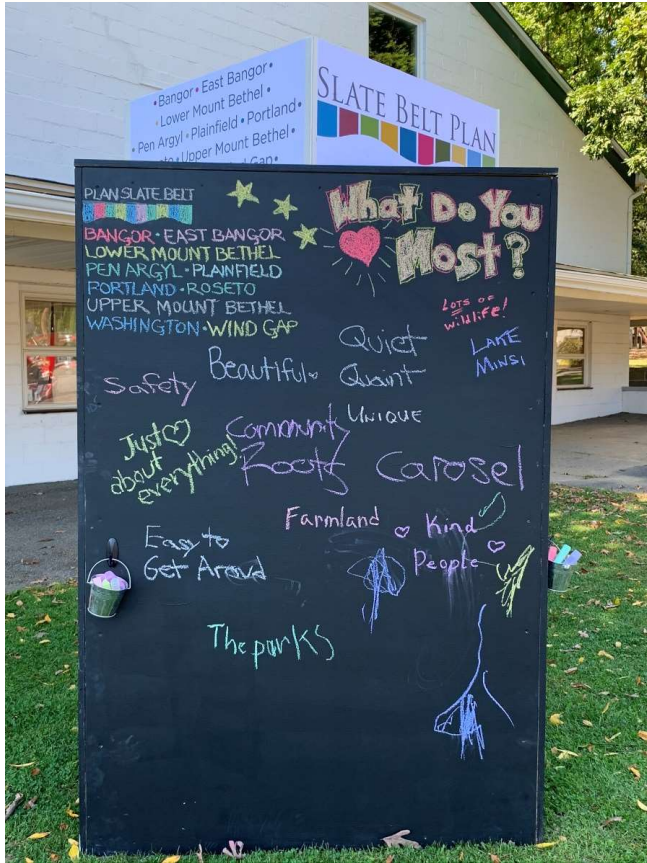 •Bangor • East Bangor•
•Lower Mount Bethel •
•Pen Argyl •Plainfield • Portland•
Upper Mount Bethel•
Gap•
SLATE BELT PLAN
PLAN SLATE BELT
BANGOR • EAST BANGOR
LOWER MOUNT BETHEL
PEN ARGYL • PLAINFIELD
PORTLAND • ROSETO
UPPER MOUNT BETHEL
WASHINGTON • WIND GAP
What Do You
Most?
LOTS OF
wildlife!
LAKE
MINSI
Quiet
Quaint
UNIQUE
Beautiful
Safety
Just
about
everything!
Community
Roots
Carosel
Farmland
Kind
People
Easy to
Get Aroud
The parks